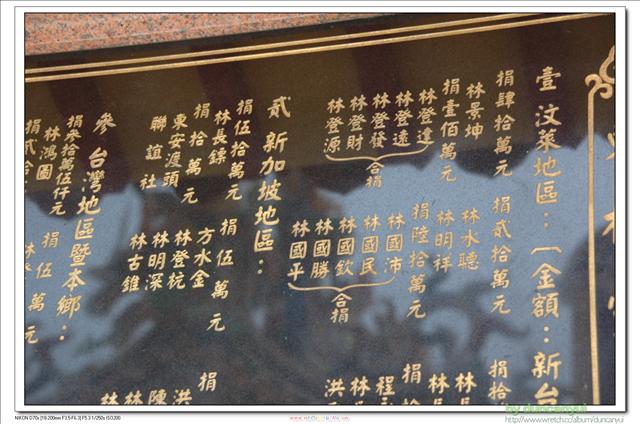 壹 汶萊地區：（金額：新台
捐肆拾萬元 捐貳拾萬元 捐拾
林景坤 林水聰 林長
捐壹佰萬元 林明祥 林長
林登達 捐陸拾萬元
林登遠 林國沛
林登發 林國民
林登財 林國欽
林登源 林國勝
林國平
合捐
合捐
貳 新加坡地區：
捐伍拾萬元 捐伍萬元 捐
林長鏢 方水金 洪
捐拾萬元 林登杭 陳
東安渡頭 林明深 林
聯誼社 林古錐 林
參 台灣地區暨本鄉：
捐參拾萬伍仟元 捐伍萬元
林鴻圖
捐貳拾
NIKON D70s [18-200mm F3.5-F5.6] F5.3 1/250s ISO200
by duncanyu
http://www.wretch.cc/album/duncanyu